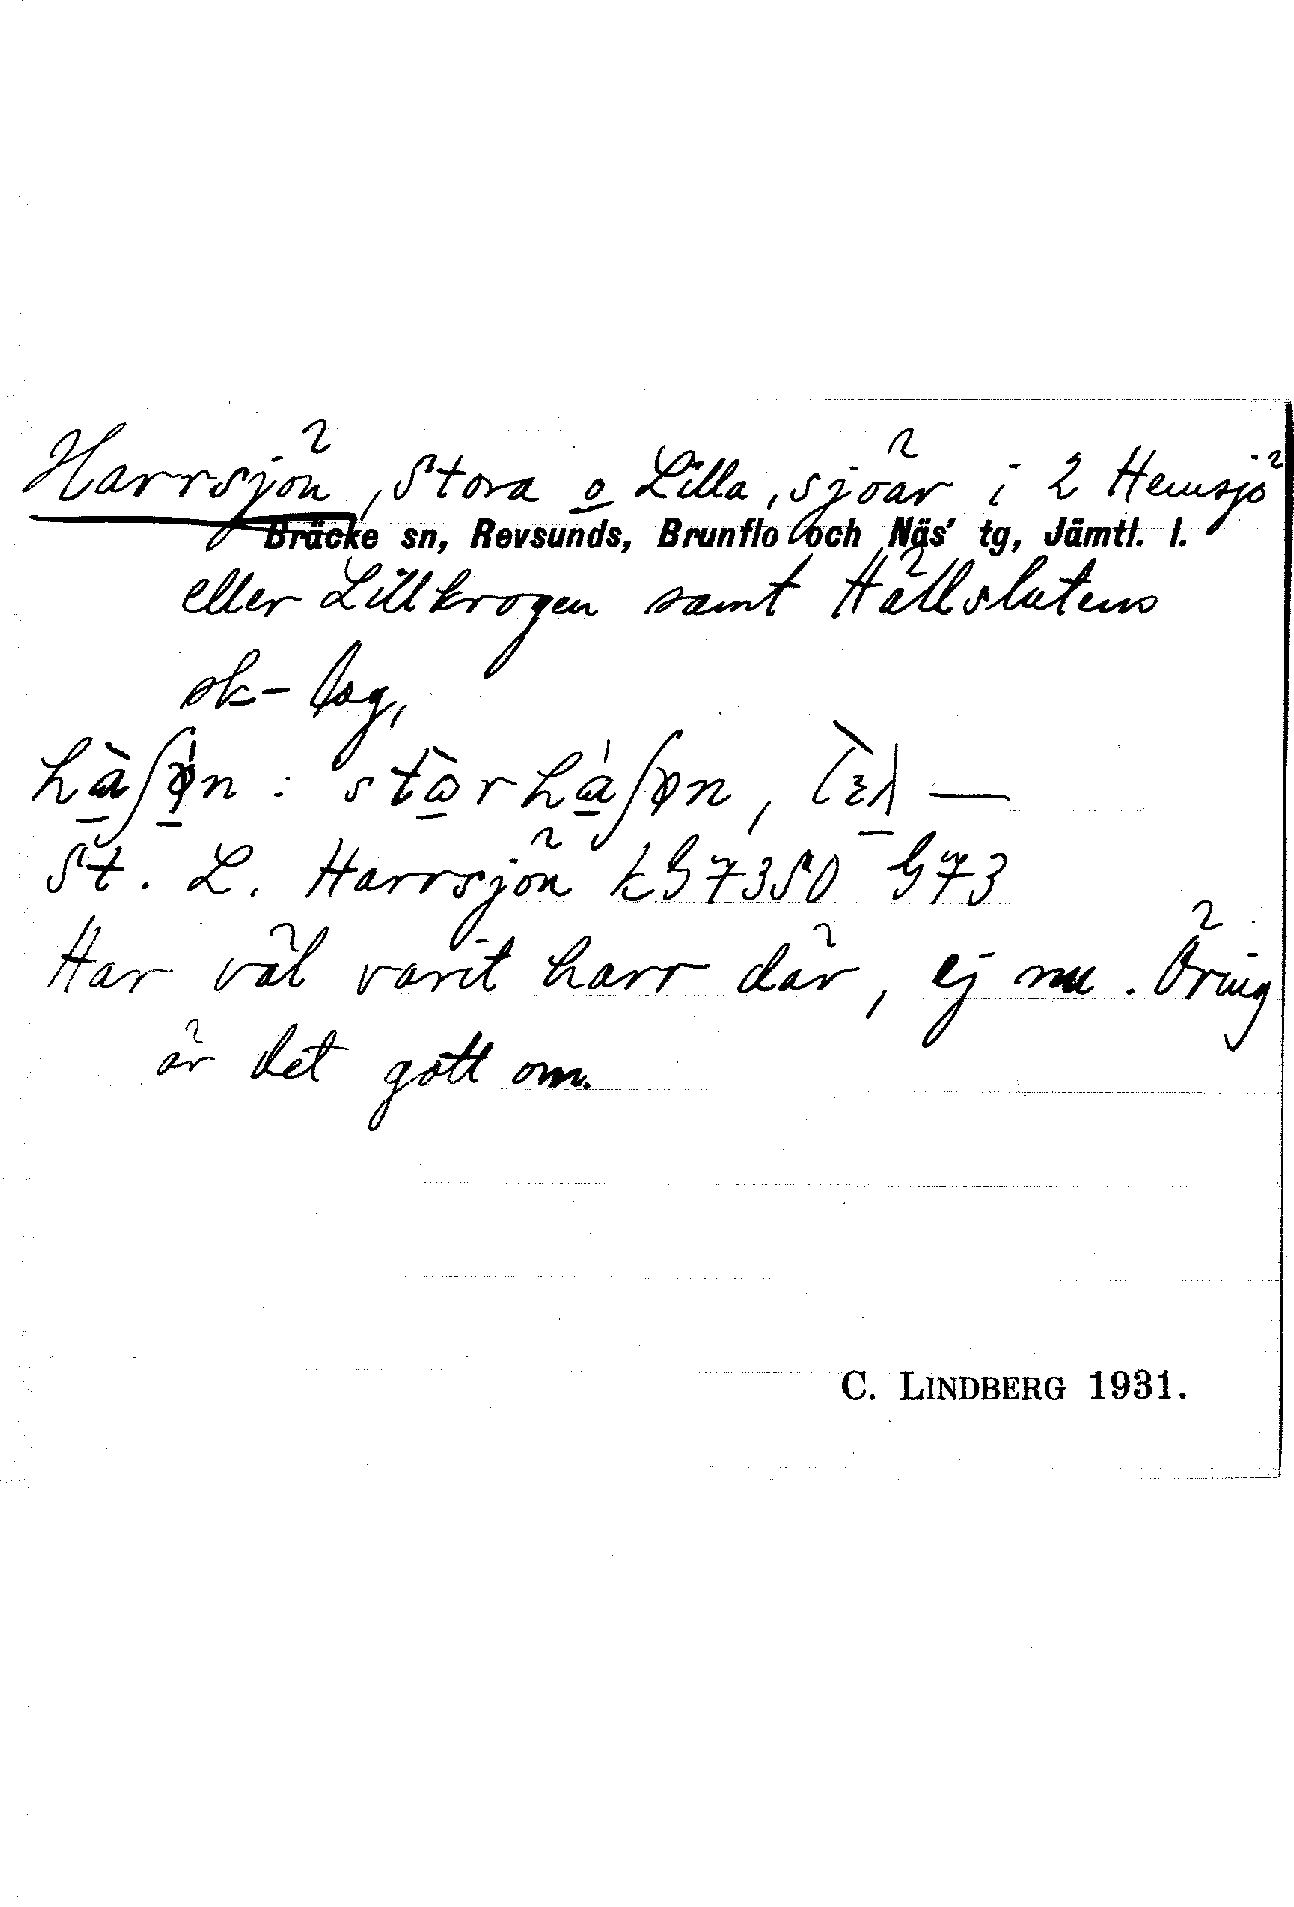 Harrsjön, Stora o Lilla, sjöar i 2 Hemsjö
Bräcke sn, Revsunds, Brunflo och Näs' tg, Jämtl. l.
eller Lillkrogen samt Hällslutens
sk-lag,
St. L. Harrsjön
Har väl varit harr där, ej nu. Öring
är det gott om.
C. LINDBERG 1931.